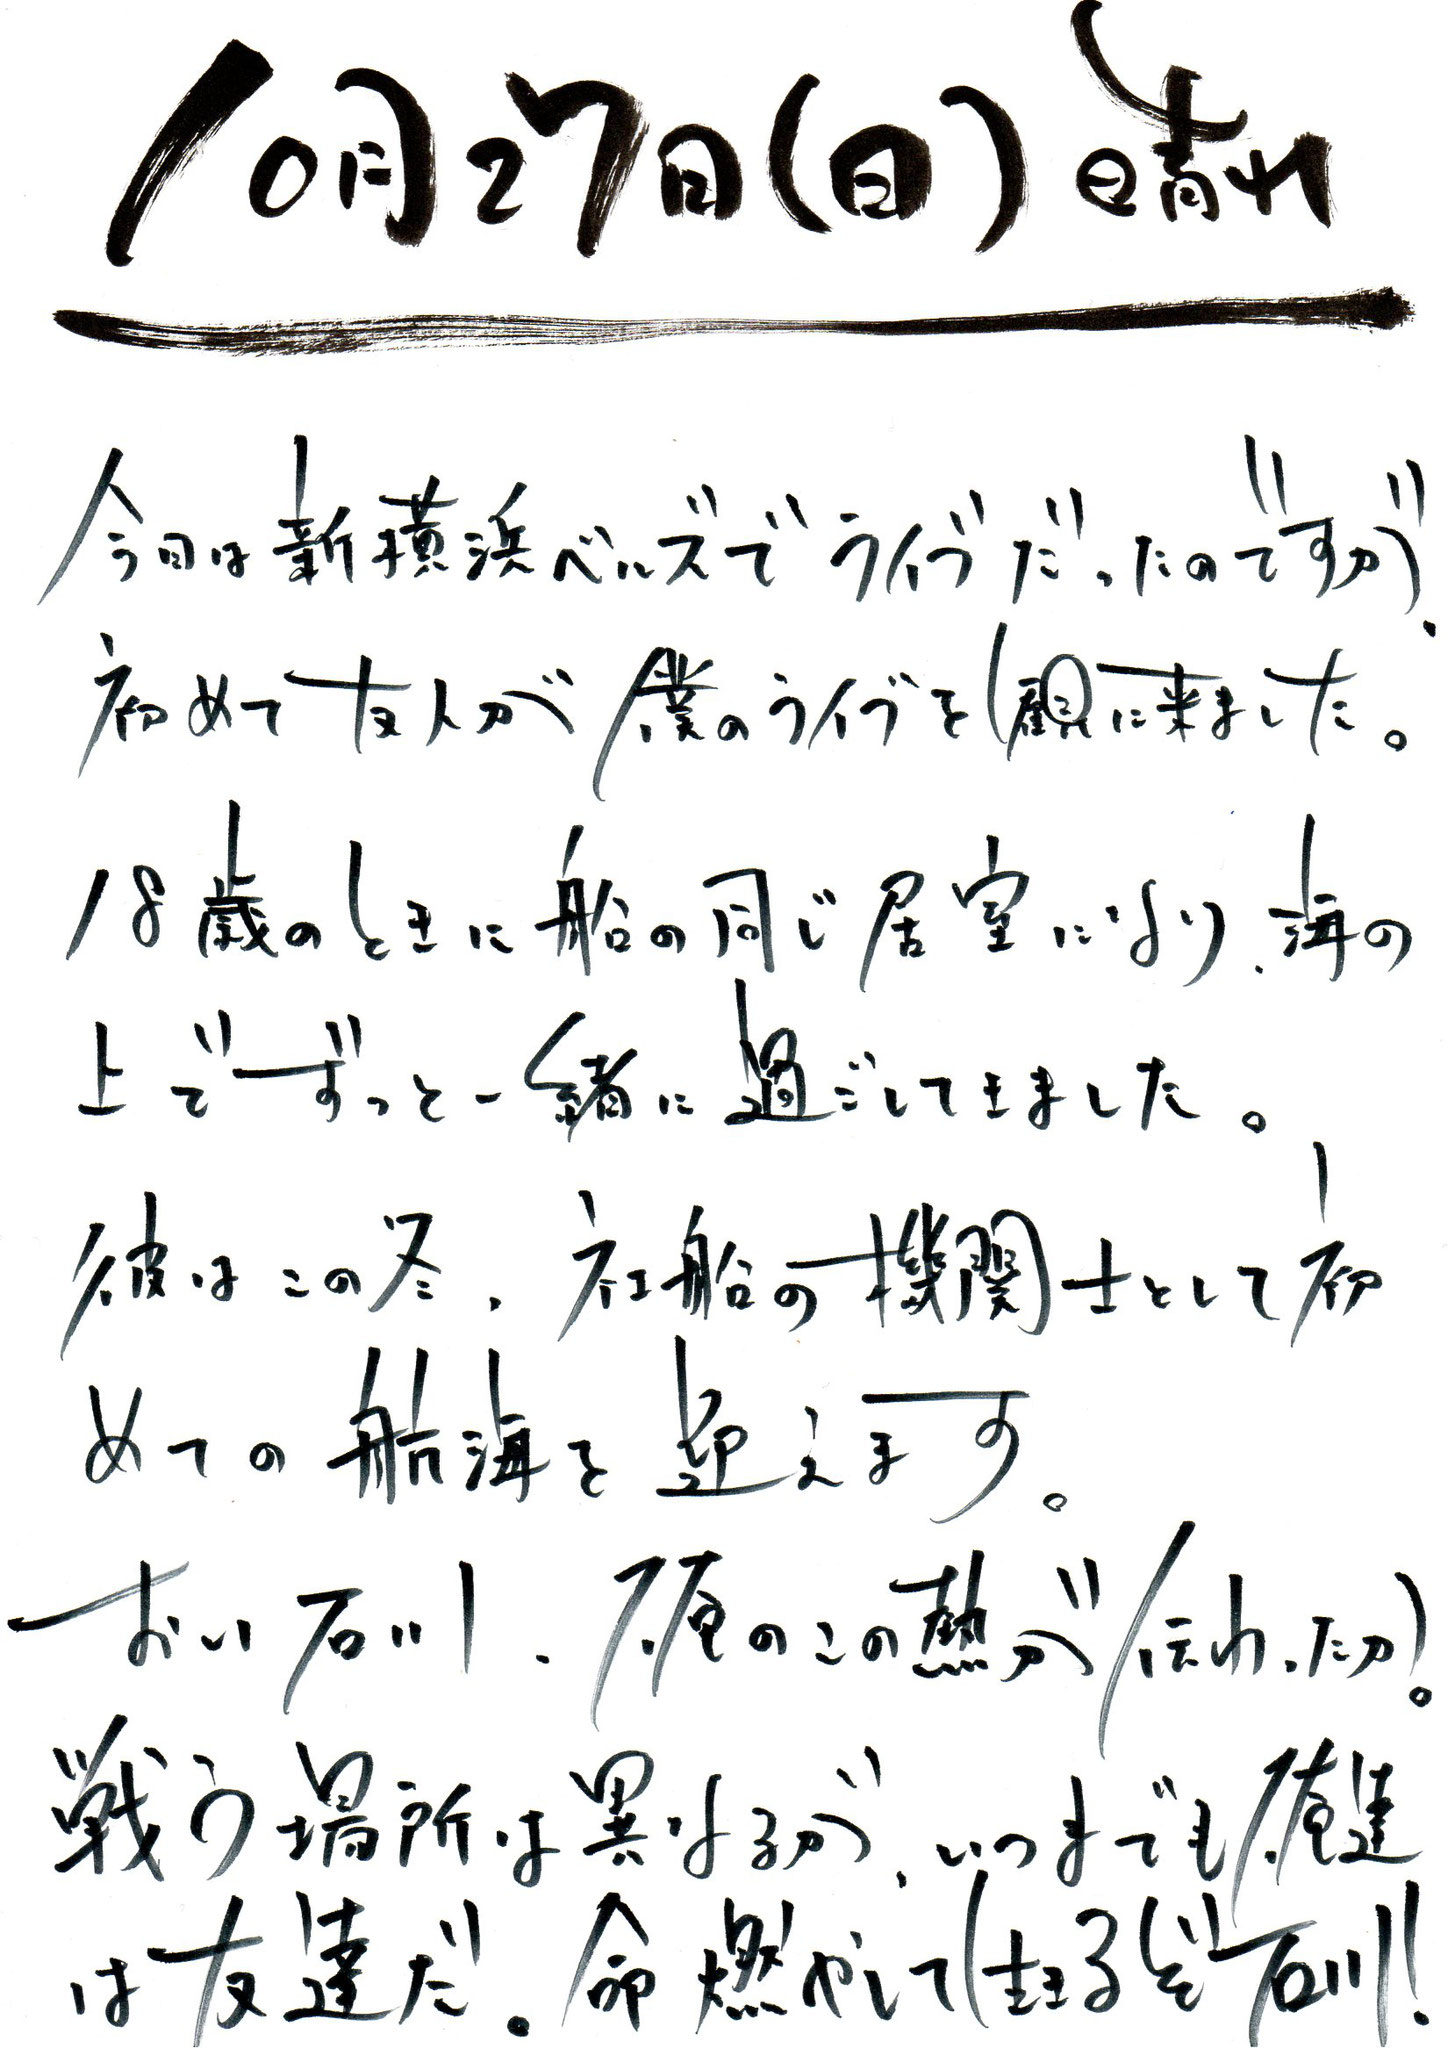 10月27日(日)晴れ
今日は新横浜ベルズでライブだったのですが、
初めて友人が僕のライブを観に来ました。
18歳のときに船の同じ居室になり、海の
上でずっと一緒に過ごしてきました。
彼はこの冬、社船の機関士として初
めての航海を迎えます。
おい石川、俺のこの熱が伝わったか。
戦う場所は異なるが、いつまでも俺達
は友達だ。命燃やして生きるぞ石川!